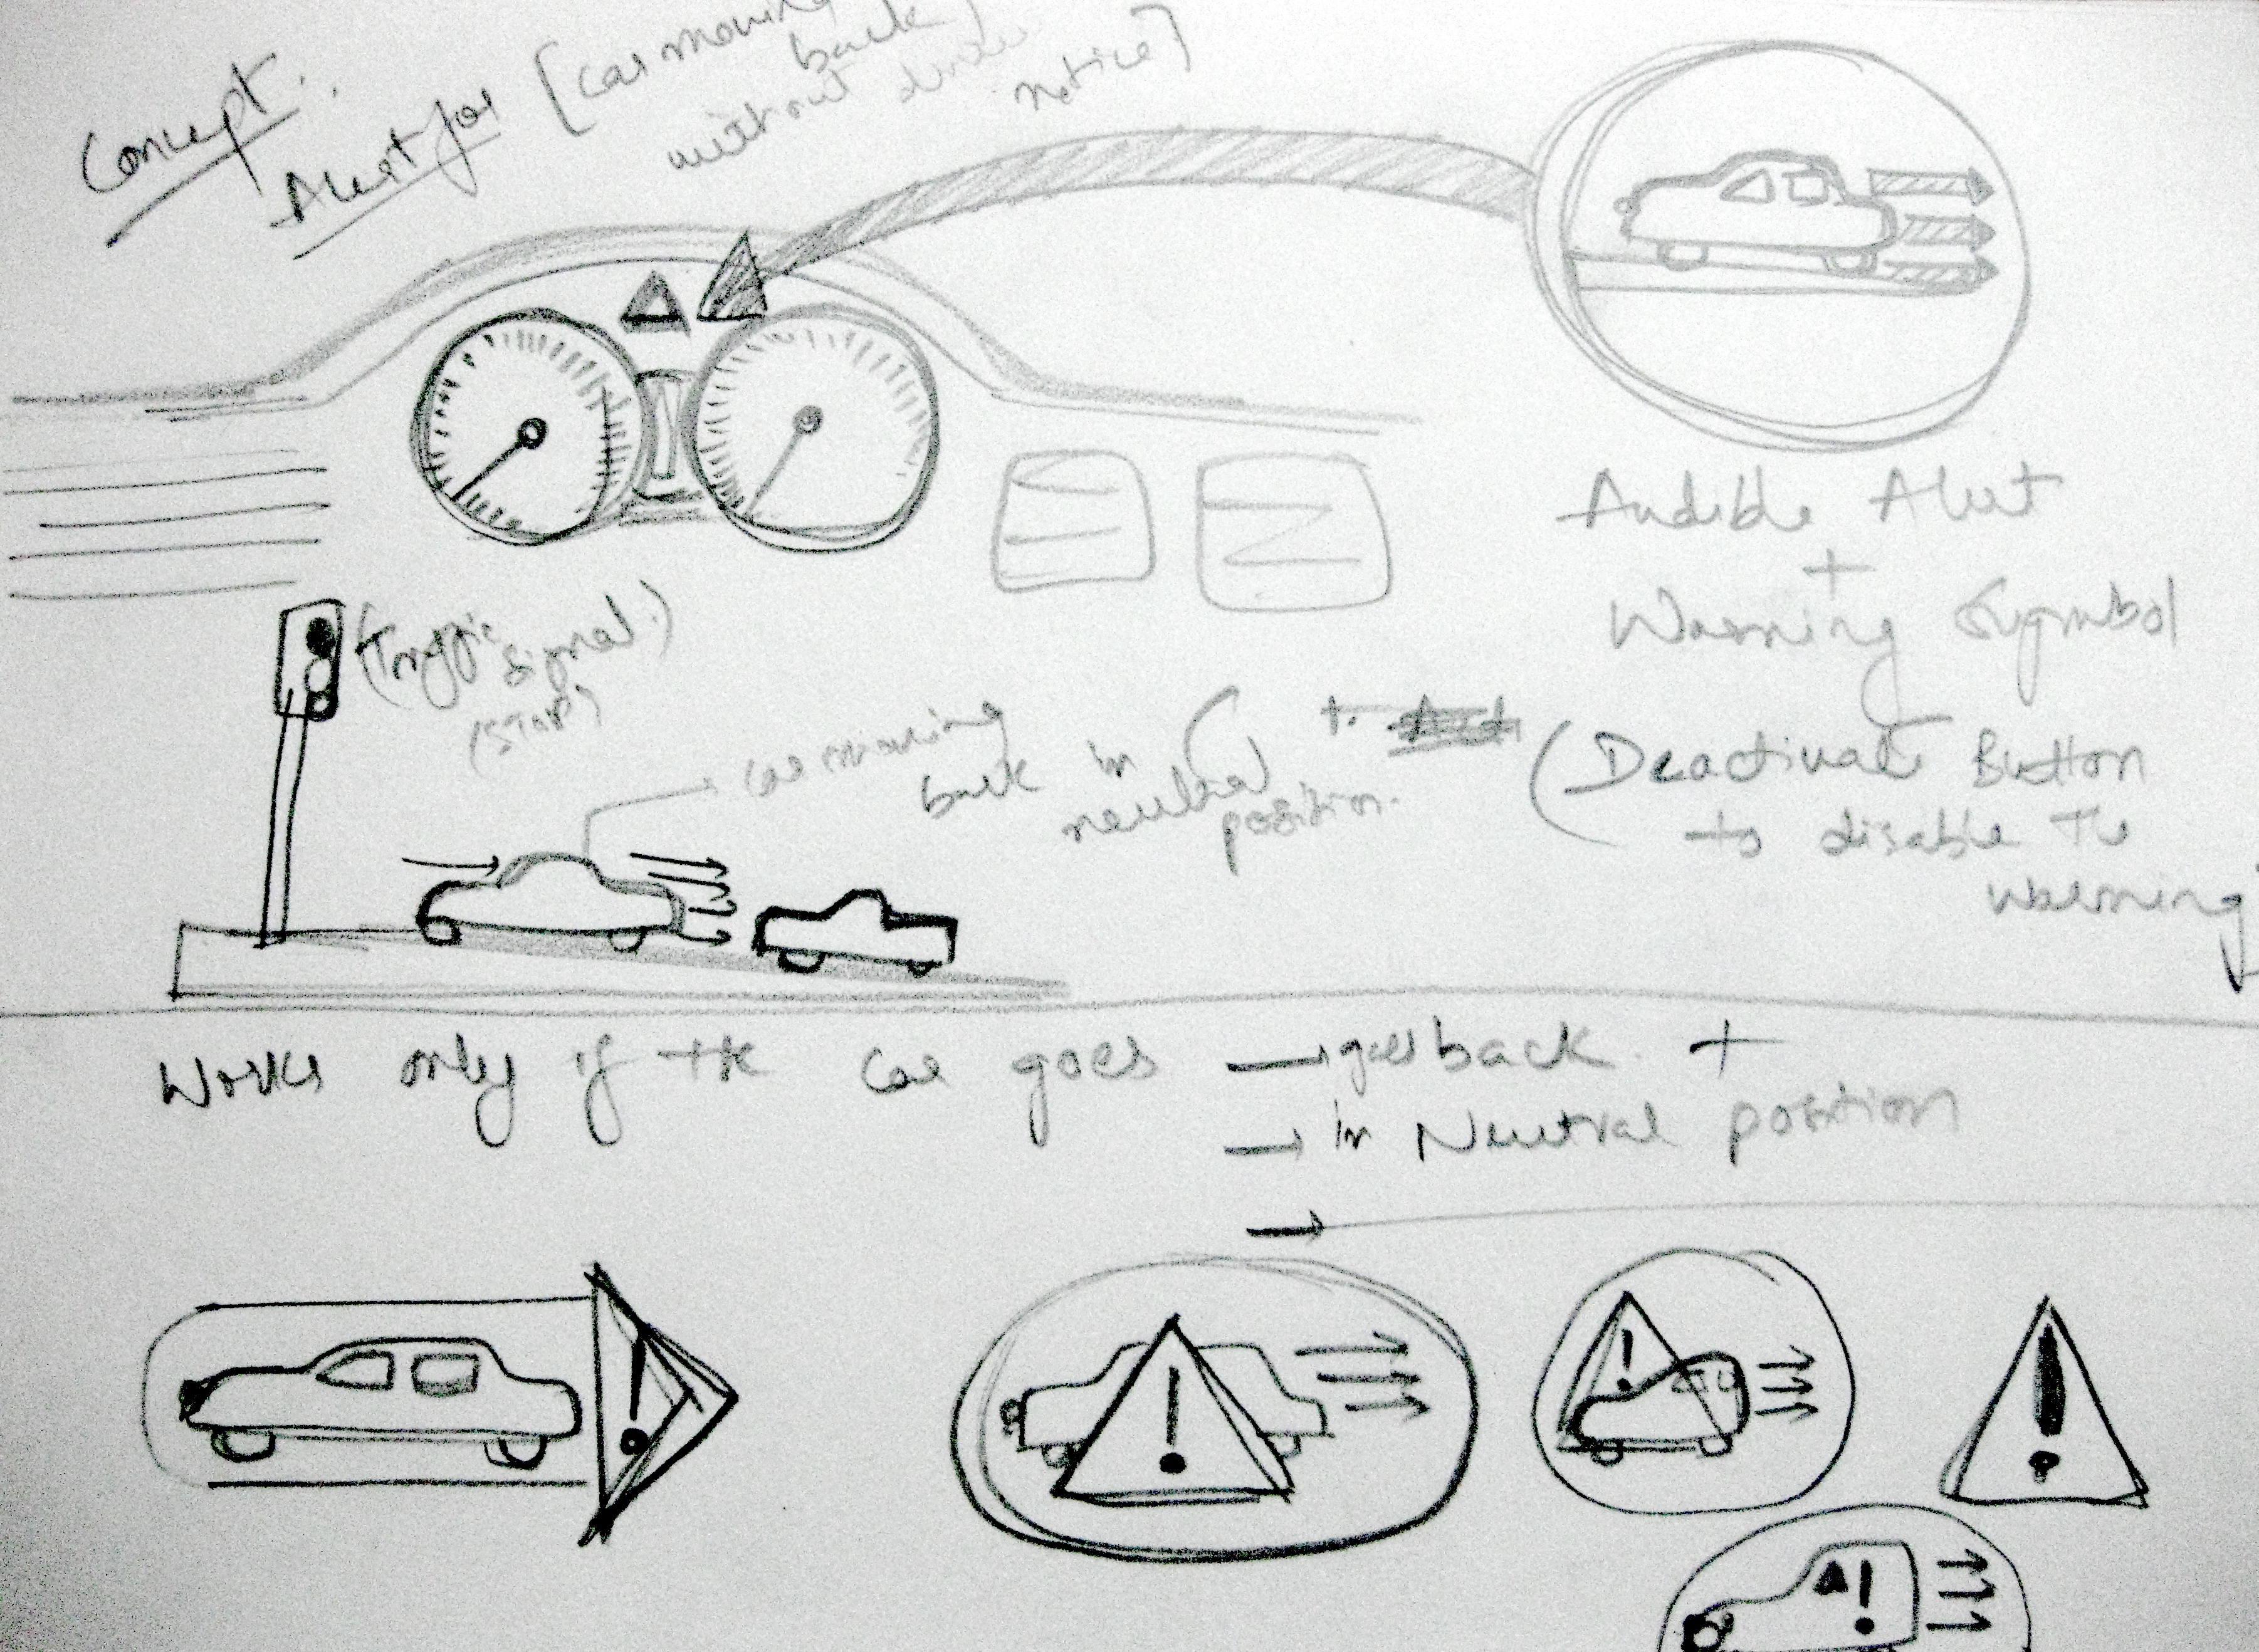 Concept.
Alert for [Car moving
back
without driver
notice]
Audible Alert
+
Warning Symbol
(Traffic
Signal.)
(STOP)
Car moving
back in
neutral
position.
+.
(Deactivate Button
to disable The
warning)
Works only if the car goes → goes back +
→ In Neutral position
→
!
!
!
!
!